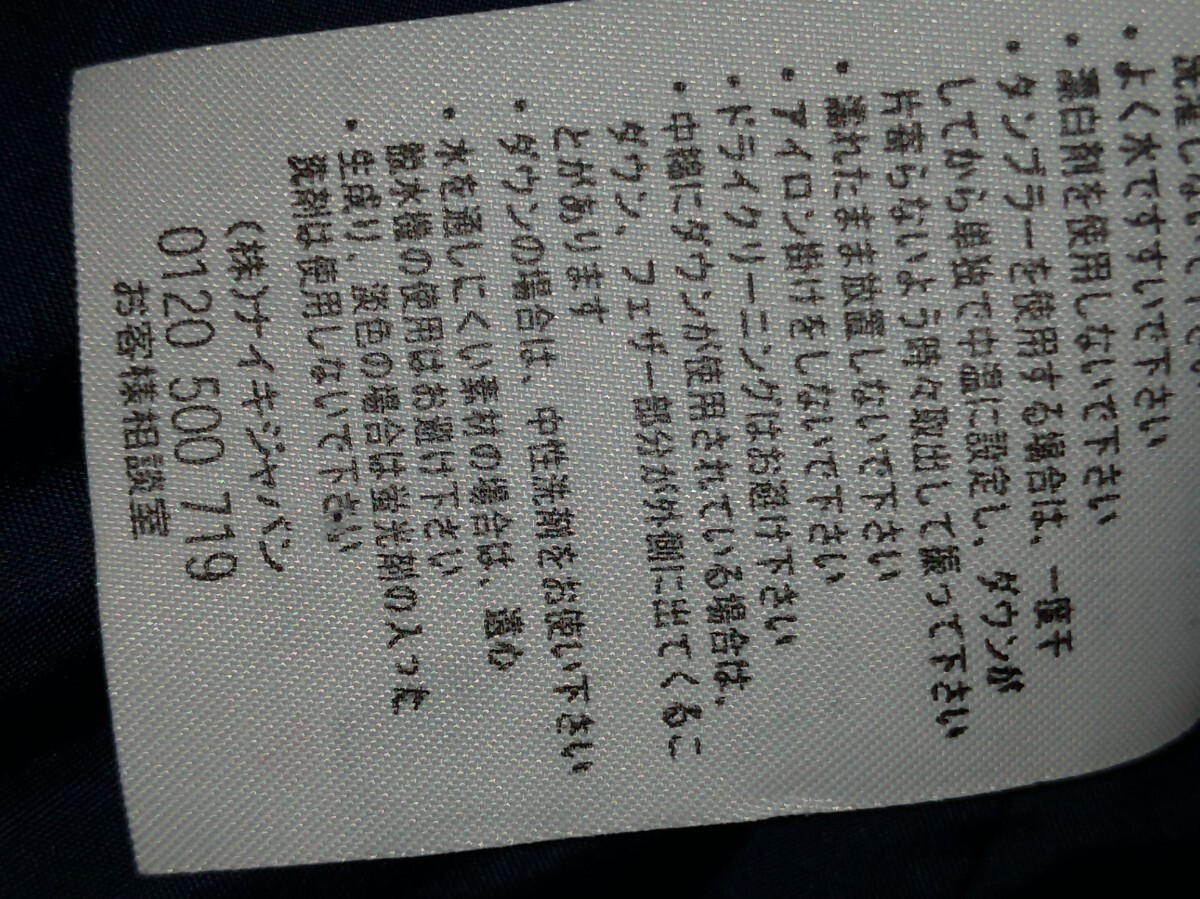 ・よく水ですすいで下さい
・漂白剤を使用しないで下さい
・タンブラーを使用する場合は、一度干
してから単独で中温に設定し、ダウンが
片寄らないよう時々取出して振って下さい
・濡れたまま放置しないで下さい
・アイロン掛けをしないで下さい
・ドライクリーニングはお避け下さい
・中綿にダウンが使用されている場合は、
ダウン、フェザー部分が外側に出てくるこ
とがあります
・ダウンの場合は、中性洗剤をお使い下さい
・水を通しにくい素材の場合は、遠心
脱水機の使用はお避け下さい
・生成り、淡色の場合は蛍光剤の入った
洗剤は使用しないで下さい
(株)ナイキジャパン
0120 500 719
お客様相談室